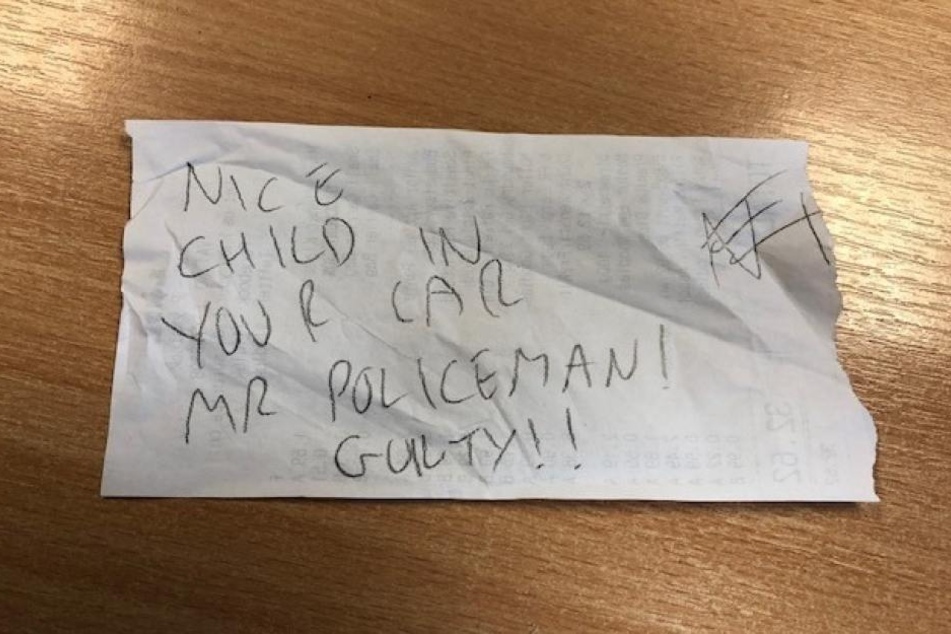 NICE
CHILD IN
YOUR CAR
MR POLICEMAN!
GUILTY!!
32.62